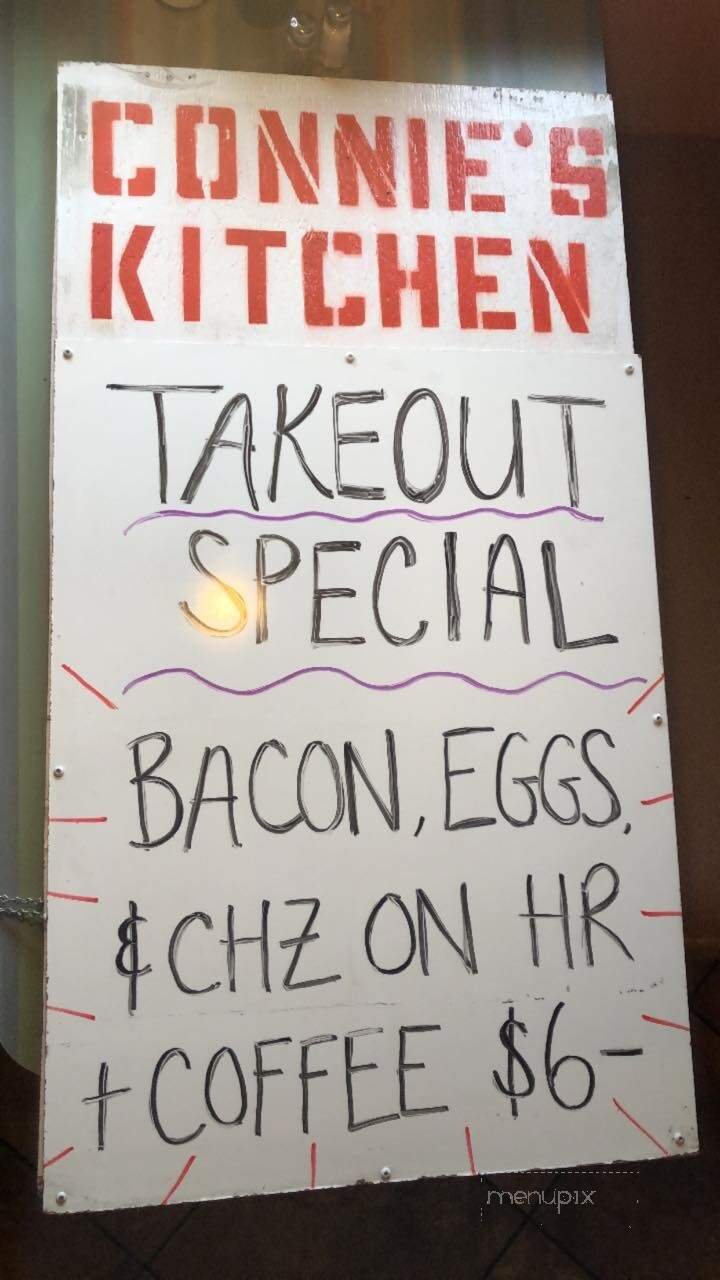 CONNIE'S
KITCHEN
TAKEOUT
SPECIAL
BACON, EGGS,
& CHZ ON HR
+ COFFEE $6-
menupix